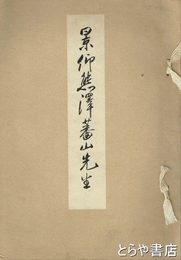 景仰熊澤蕃山先生
とらや書店